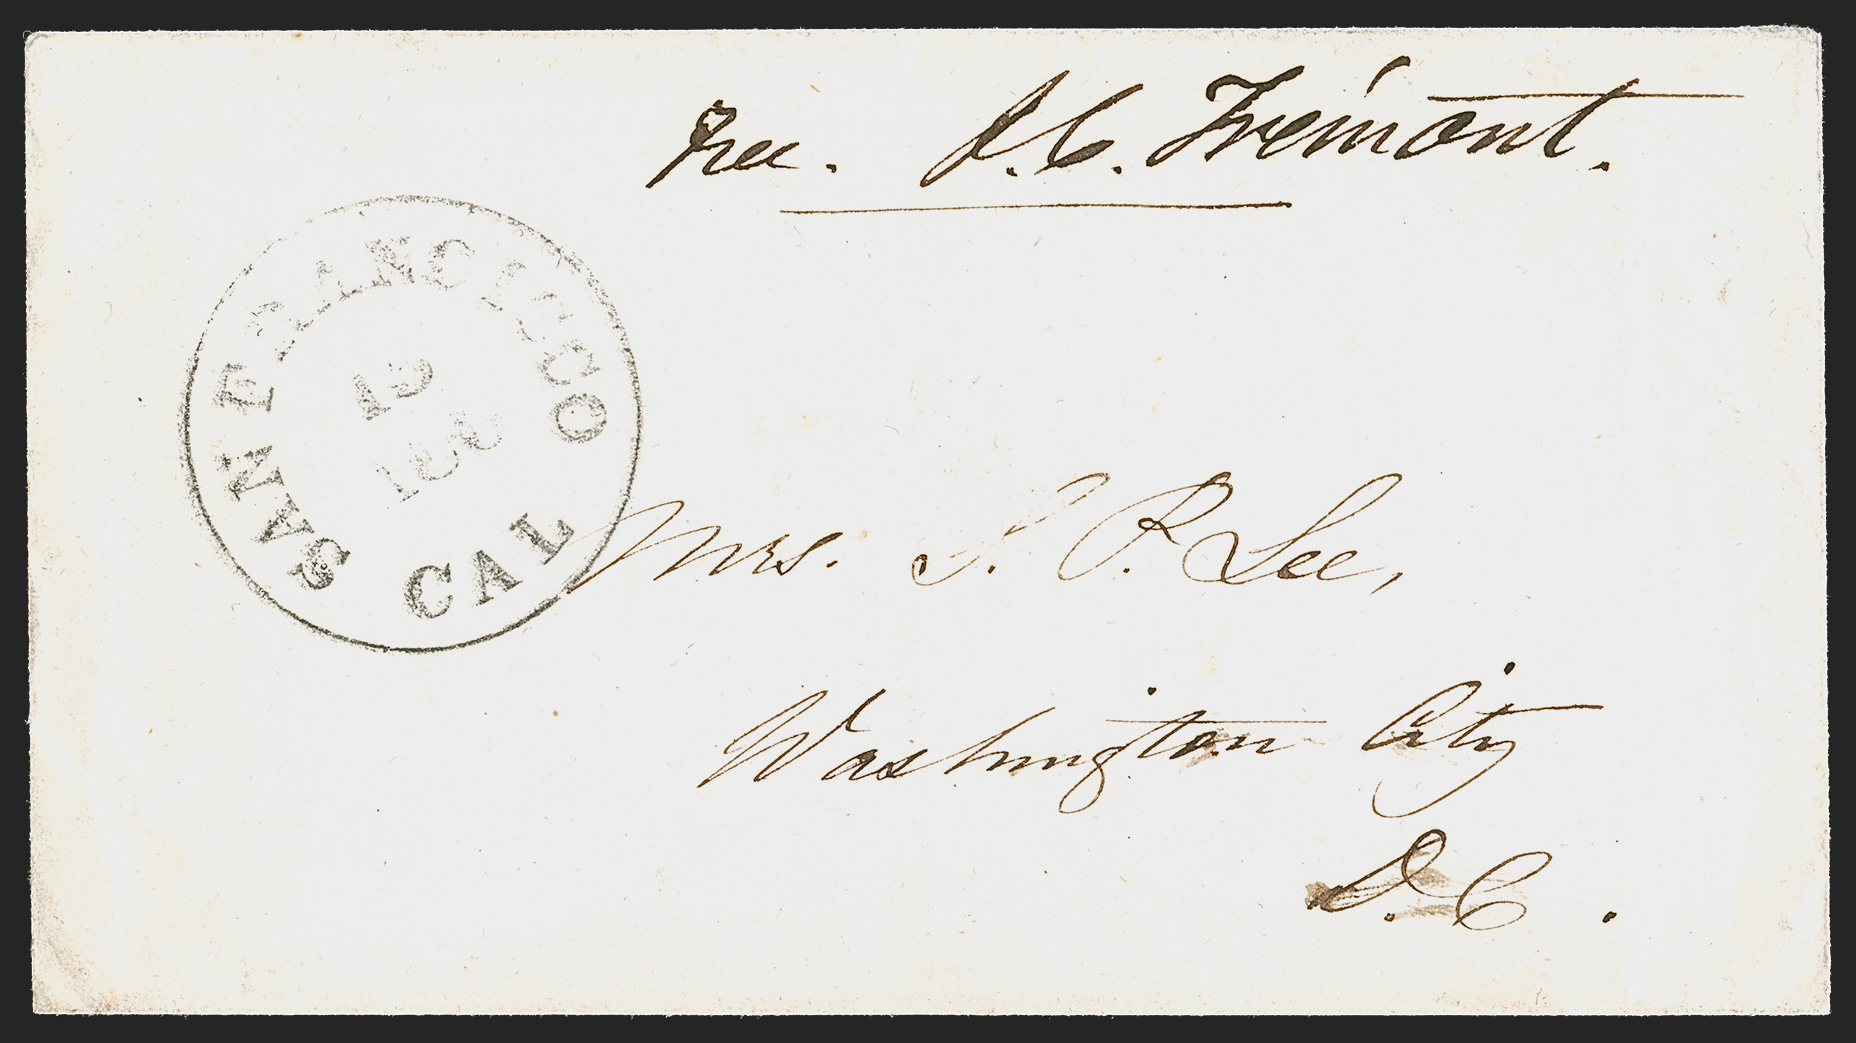 Free. J. C. Frémont.
SAN FRANCISCO
15
CAL
Mrs. S. P. Lee,
Washington City
D.C.